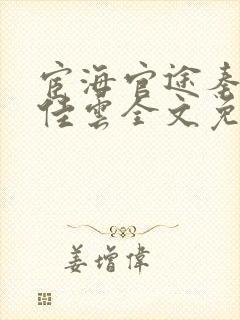 宦海官途秦
佳云全文免
姜增偉